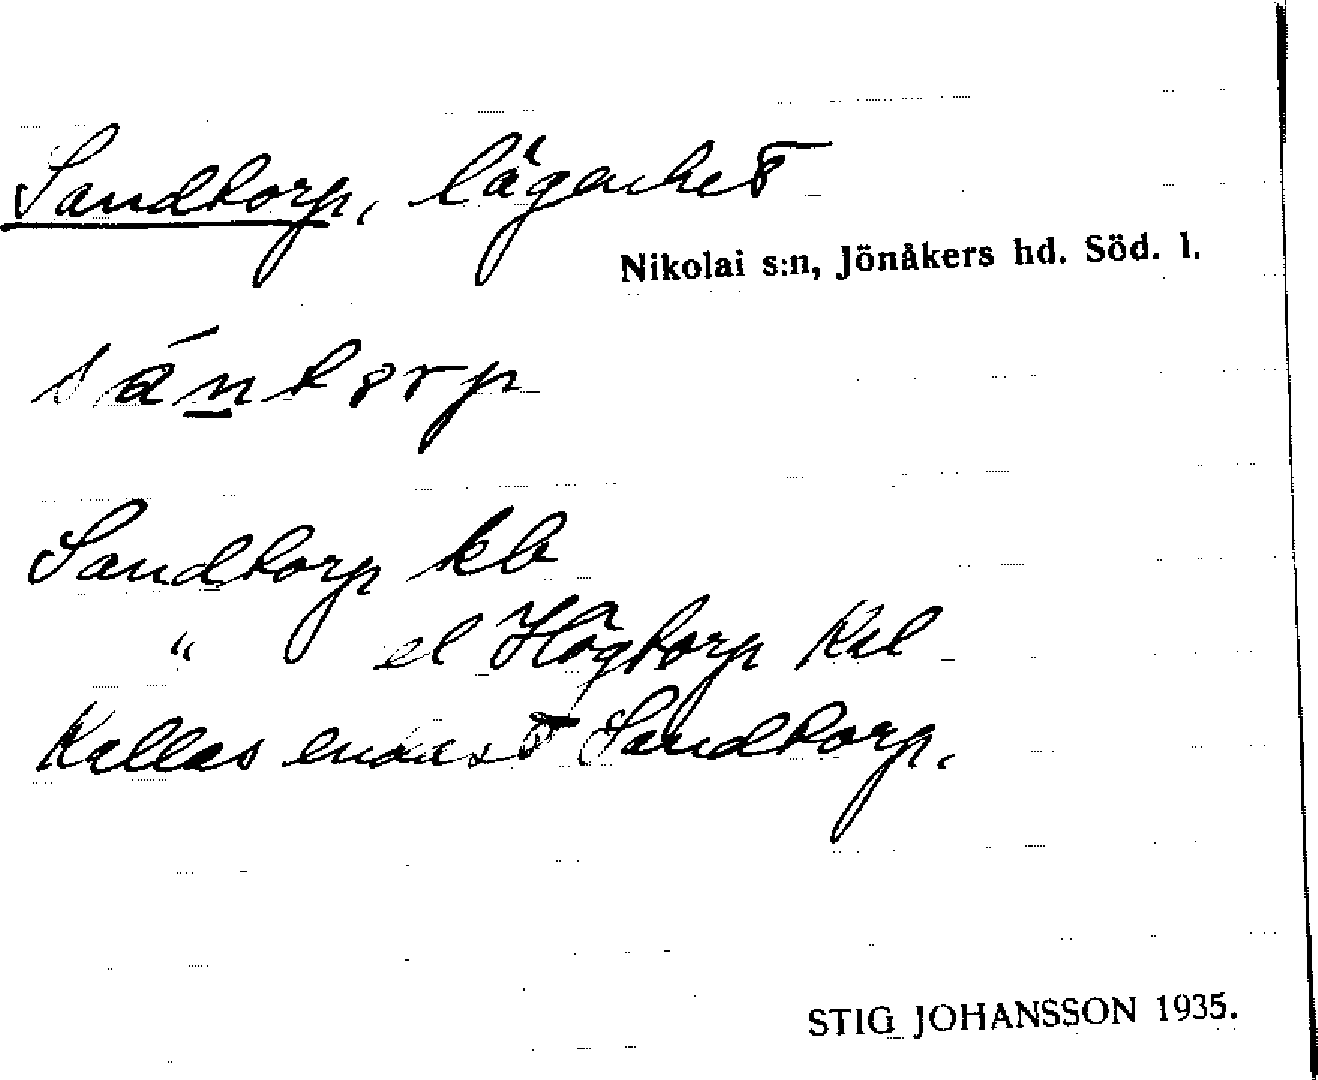 Sandtorp, lägenhet
Nikolai s:n, Jönåkers hd. Söd. l.
sántorp
Sandtorp kb
" el Högtorp
Kallas endast Sandtorp.
STIG JOHANSSON 1935.